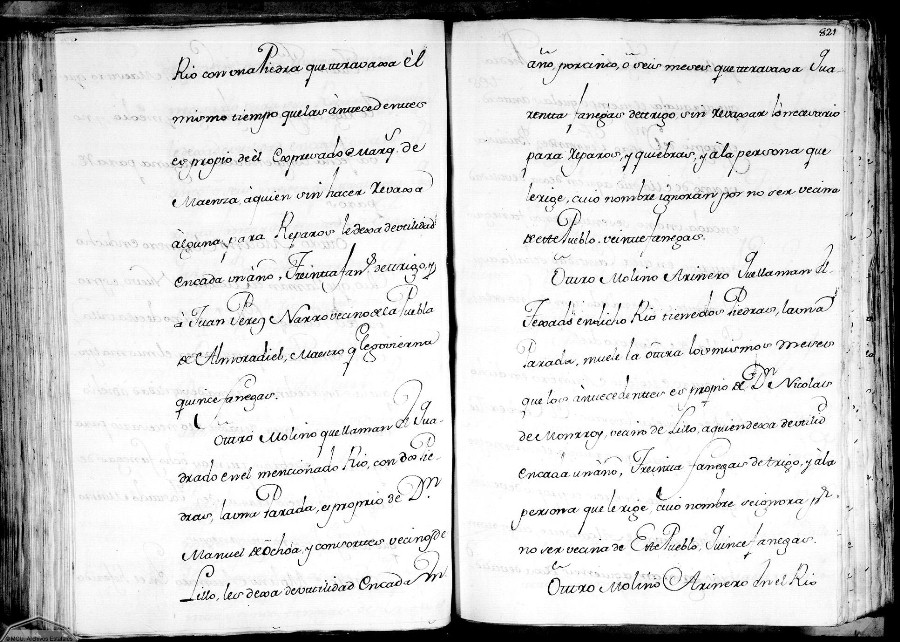 Rio con una Piedra que travaxa èl
mismo tiempo que las àntecedentes
es propio de èl Expresado Marq.s de
Maenza, àquien sin hacer Revaxa
àlguna para Reparos le dexa de utilidad
en cada un año, Treinta fan.s de trigo, y
à Juan Perez Narro vecino de la Puebla
de Almoradiel, Maestro q.e le govierna
quince fanegas.
Òtro Molino que llaman el Qua-
drado en el mencionado Rio, con dos Pie-
dras, la una Parada, es proprio de D.n
Manuel de Ochoa, y consortes vecinos de
Lillo, les dexa de utilidad En cada Un
821
año, por cinco, ò seis meses que travaxa Qua-
renta fanegas de trigo, sin revaxar lo necesario
para reparos, y quiebras, y à la persona que
le rige, cuio nombre ignoran por no ser vecino
de este Pueblo. veinte fanegas.
Òtro Molino Arinero Que llaman el
en dicho Rio tiene dos Piedras, la una
Parada, muele la òtra los mismos meses
que los àntecedentes es propio de D.n Nicolas
de Monrroy, vecino de Lillo, a quien dexa de utilid
en cada un año, Treinta fanegas de trigo, y à la
persona que le rige, cuio nombre se ignora p.r
no ser vecino de Este Pueblo, Quince fanegas.
Òtro Molino Arinero En el Rio
© MCU. Archivos Estatales